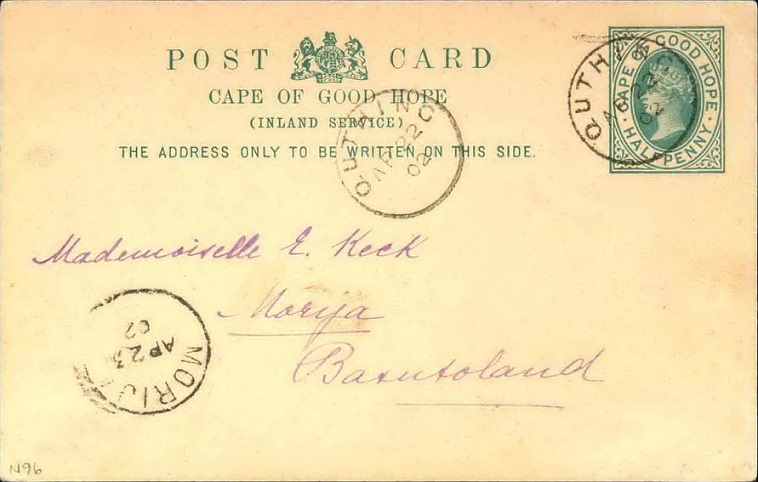 POST CARD
CAPE OF GOOD HOPE
(INLAND SERVICE)
THE ADDRESS ONLY TO BE WRITTEN ON THIS SIDE.
CAPE OF GOOD HOPE
HALFPENNY
QUTHING
AP 22
02
QUTHING
AP 22
02
Mademoiselle E. Keck
Morija
Basutoland
MORIJA
AP 23
02
N96